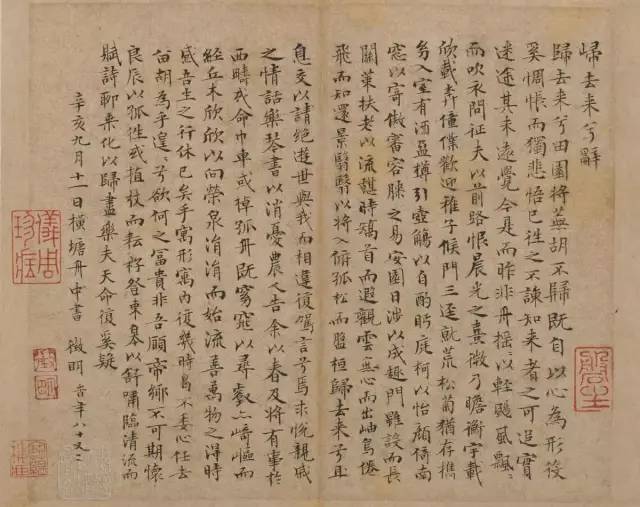 歸去来兮辭
歸去来兮田園將蕪胡不歸既自以心為形役
奚惆悵而獨悲悟已往之不諫知来者之可追實
迷途其未遠覺今是而昨非舟揺〻以輕颺風飄〻
而吹衣問征夫以前路恨晨光之熹微乃瞻衡宇載
欣載奔僮僕歡迎稚子候門三逕就荒松菊猶存携
幼入室有酒盈樽引壺觴以自酌眄庭柯以怡顔倚南
窓以寄傲審容膝之易安園日涉以成趣門雖設而長
關策扶老以流憩時矯首而遐觀雲無心而出岫鳥倦
飛而知還景翳翳以將入撫孤松而盤桓歸去来兮且
息交以請絶遊世與我而相違復駕言兮焉求悦親戚
之情話樂琴書以消憂農人告余以春及將有事於
西疇或命巾車或棹孤舟既窈窕以尋壑亦崎嶇而
經丘木欣欣以向榮泉涓涓而始流善萬物之得時
感吾生之行休已矣乎寓形寓內復幾時曷不委心任去
留胡為乎遑〻兮欲何之富貴非吾願帝鄉不可期懷
良辰以孤往或植杖而耘耔登東皋以舒嘯臨清流而
賦詩聊乘化以歸盡樂夫天命復奚疑
辛亥九月十一日横塘舟中書 徵明 時年八十又二
儀周珍藏